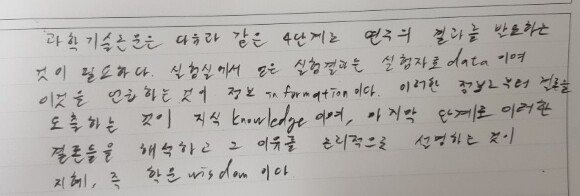 과학기술논문은 다음과 같은 4단계로 연구의 결과를 발표하는
것이 필요하다. 실험실에서 얻은 실험결과은 실험자료 data 이며
이것을 언급하는 것이 정보 information 이다. 이러한 정보로부터 결론을
도출하는 것이 지식 knowledge 이며, 마지막 단계로 이러한
결론들을 해석하고 그 이유를 논리적으로 설명하는 것이
지혜, 즉 학문 wisdom 이다.